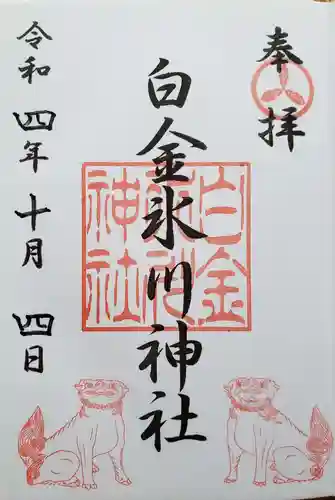 奉拝
白金氷川神社
白金氷川神社
令和四年十月四日